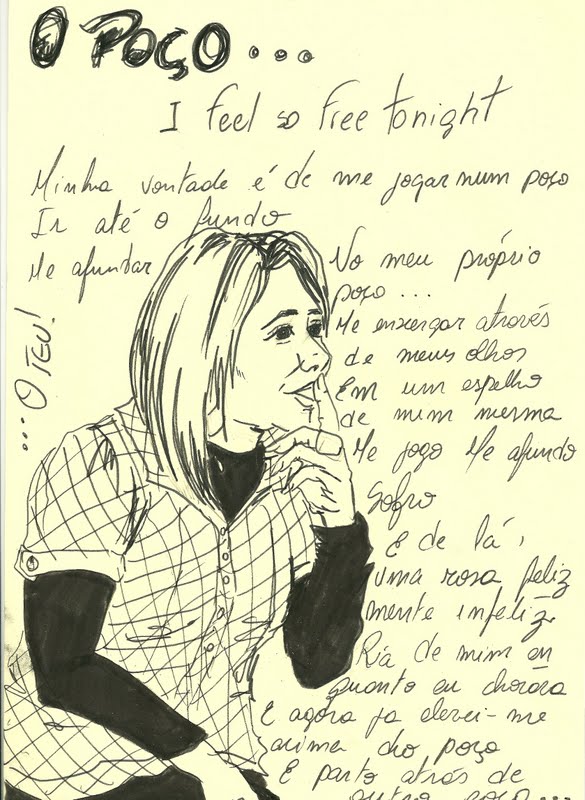 O POÇO...
I feel so free tonight
Minha vontade é de me jogar num poço
Ir até o fundo
Me afundar
No meu próprio
poço ...
Me enxergar através
de meus olhos
Em um espelho
de mim mesma
Me jogo Me afundo
Sofro
E de lá,
uma rosa feliz
mente infeliz
Ria de mim en
quanto eu chorava
E agora já elevei-me
acima do poço
E parto atrás de
outro poço...
...O TEU!